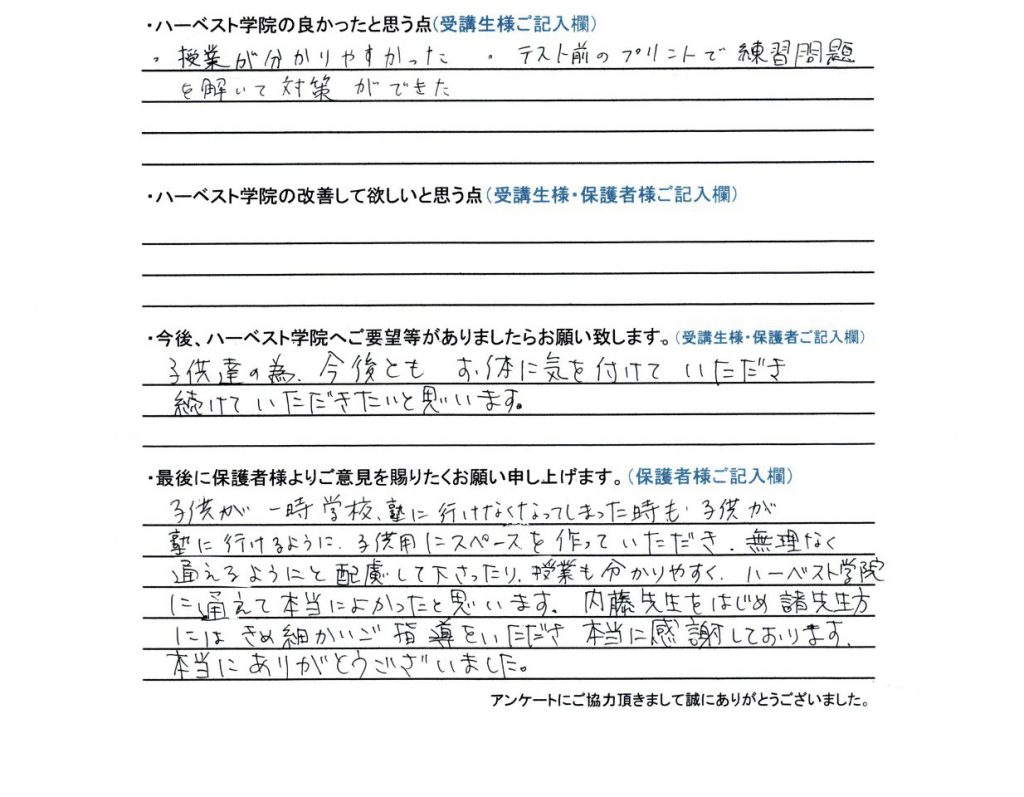 ・ハーベスト学院の良かったと思う点(受講生様ご記入欄)
・授業が分かりやすかった ・テスト前のプリントで練習問題
を解いて対策ができた
・ハーベスト学院の改善して欲しいと思う点(受講生様・保護者様ご記入欄)
・今後、ハーベスト学院へご要望等がありましたらお願い致します。(受講生様・保護者ご記入欄)
子供達の為、今後とも お体に気を付けて いただき
続けていただきたいと思います。
・最後に保護者様よりご意見を賜りたくお願い申し上げます。(保護者様ご記入欄)
子供が一時学校、塾に行けなくなってしまった時も、子供が
塾に行けるように、子供用にスペースを作っていただき、無理なく
通えるようにと配慮して下さったり、授業も分かりやすく、ハーベスト学院
に通えて本当によかったと思います。内藤先生をはじめ諸先生方
にはきめ細かいご指導をいただき本当に感謝しております。
本当にありがとうございました。
アンケートにご協力頂きまして誠にありがとうございました。